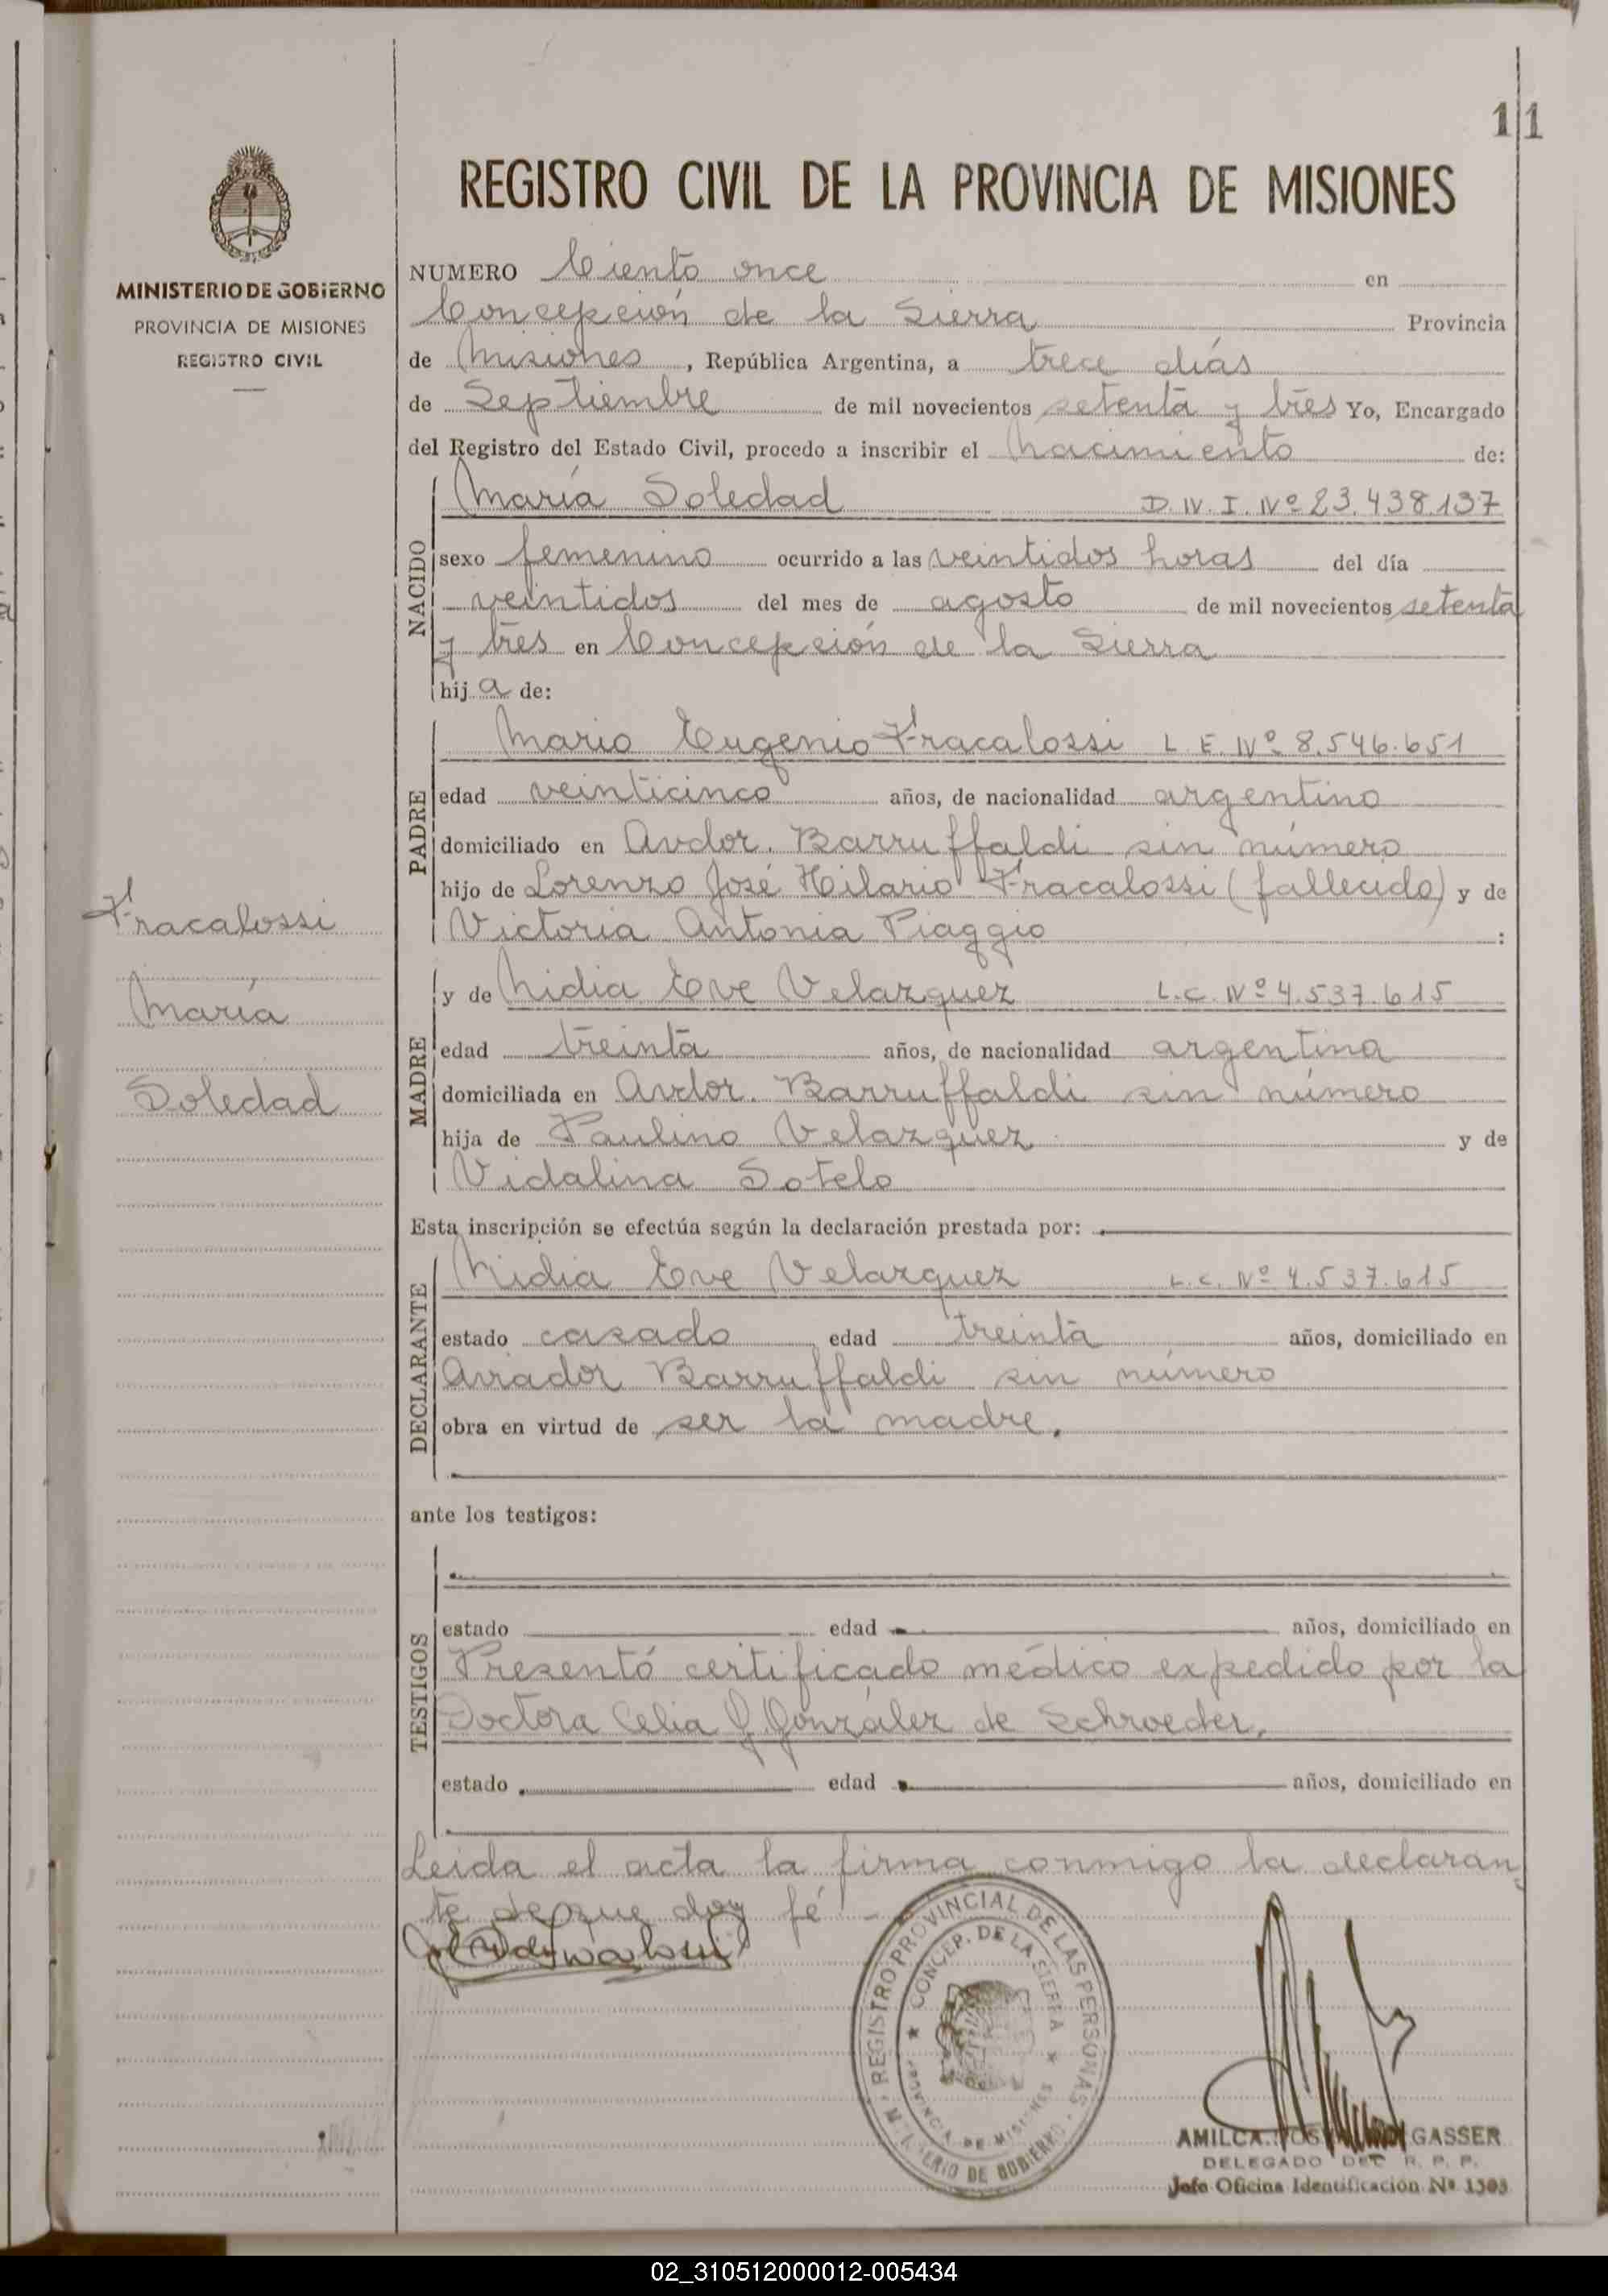 111
REGISTRO CIVIL DE LA PROVINCIA DE MISIONES
MINISTERIO DE GOBIERNO
PROVINCIA DE MISIONES
REGISTRO CIVIL
NUMERO Ciento once en
Concepción de la Sierra Provincia
de Misiones, República Argentina, a trece días
de Septiembre de mil novecientos setenta y tres Yo, Encargado
del Registro del Estado Civil, procedo a inscribir el nacimiento de:
NACIDO
María Soledad D.N.I. Nº 23.438.137
sexo femenino ocurrido a las veintidos horas del día
veintidos del mes de agosto de mil novecientos setenta
y tres en Concepción de la Sierra
hija de:
PADRE
Mario Eugenio Fracalossi L.E. Nº 8.546.651
edad veinticinco años, de nacionalidad argentino
domiciliado en Avdor. Barruffaldi sin número
hijo de Lorenzo José Hilario Fracalossi (fallecido) y de
Victoria Antonia Piaggio :
Fracalossi
María
Soledad
MADRE
y de Nidia Eve Velazquez L.C. Nº 4.537.615
edad treinta años, de nacionalidad argentina
domiciliada en Avdor. Barruffaldi sin número
hija de Paulino Velazquez y de
Vidalina Sotelo
Esta inscripción se efectúa según la declaración prestada por:
DECLARANTE
Nidia Eve Velazquez L.C. Nº 4.537.615
estado casado edad treinta años, domiciliado en
Aviador Barruffaldi sin número
obra en virtud de ser la madre.
ante los testigos:
TESTIGOS
estado edad años, domiciliado en
Presentó certificado médico expedido por la
Doctora Celia G. González de Schroeder.
estado edad años, domiciliado en
Leida el acta la firma conmigo la declaran
te de que doy fé -
REGISTRO PROVINCIAL DE LAS PERSONAS
MINISTERIO DE GOBIERNO
CONCEP. DE LA SIERRA
PROVINCIA DE MISIONES
GASSER
DELEGADO DEL R. P. P.
Jefe Oficina Identificación Nº 1503
02_310512000012-005434